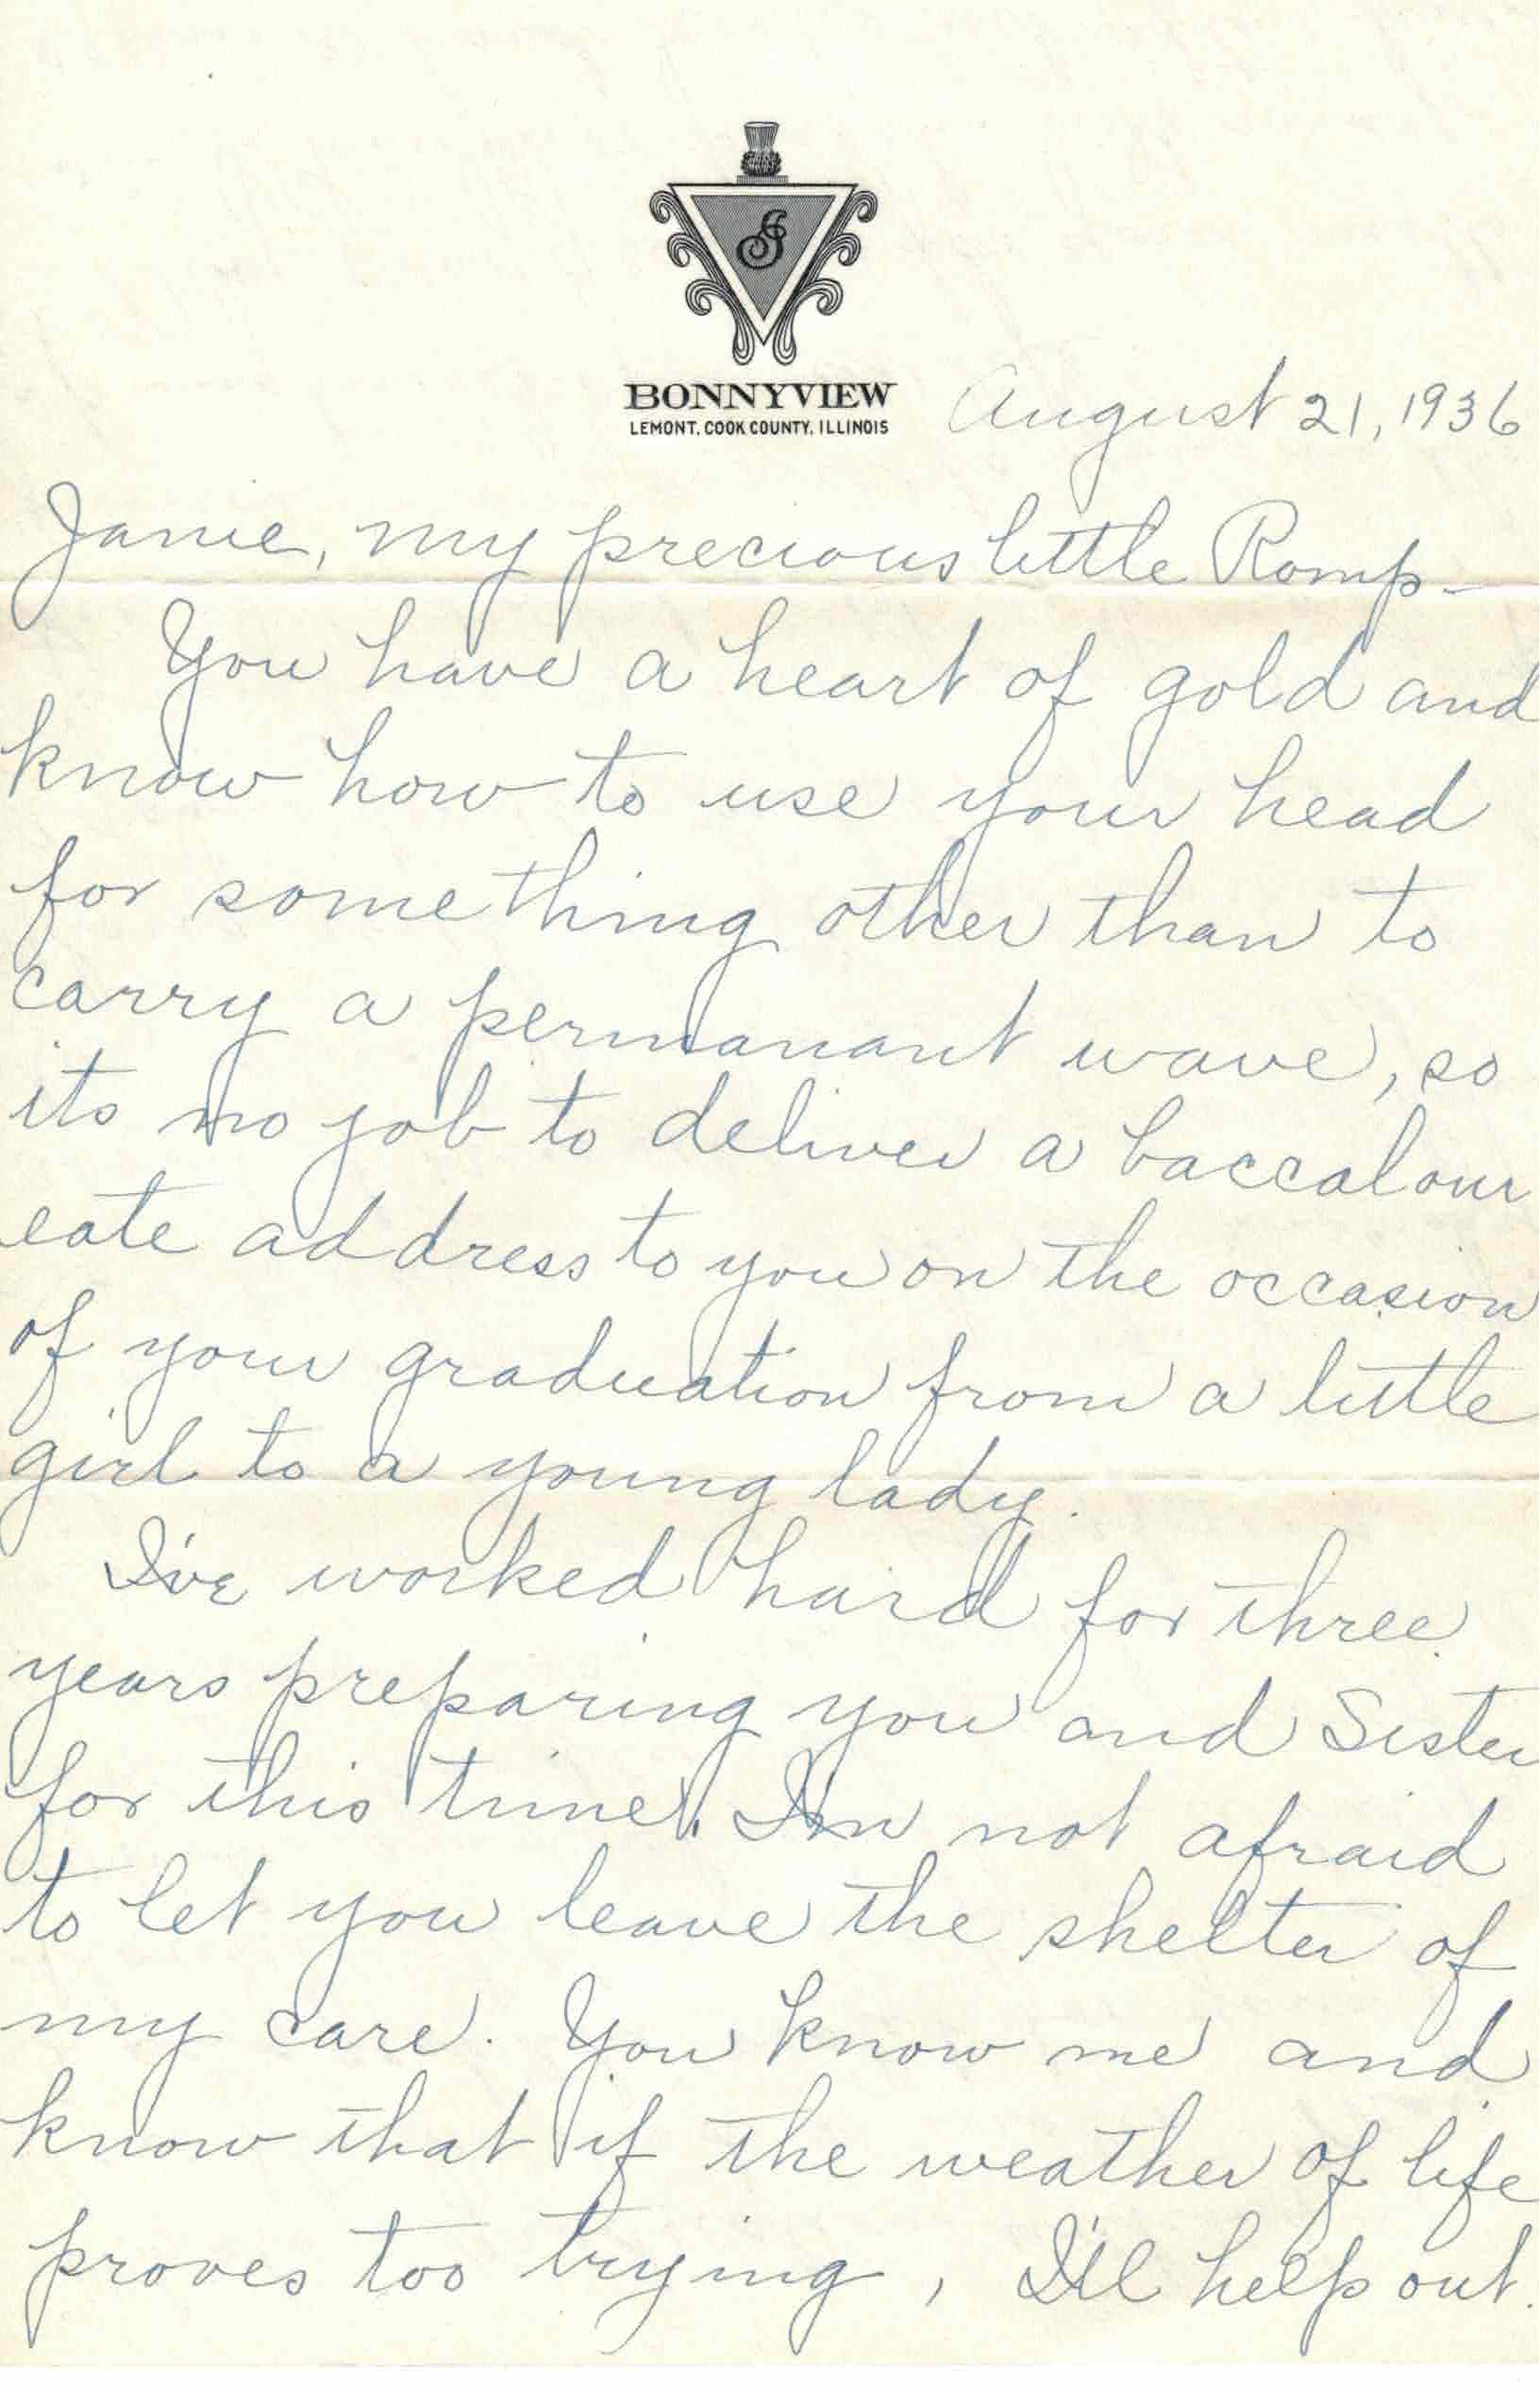 J
BONNYVIEW
LEMONT, COOK COUNTY, ILLINOIS
August 21, 1936
Janie, my precious little Romp—
You have a heart of gold and
know how to use your head
for something other than to
carry a permanant wave, so
its no job to deliver a baccalour
eate address to you on the occasion
of your graduation from a little
girl to a young lady.
I've worked hard for three
years preparing you and Sister
for this time. I'm not afraid
to let you leave the shelter of
my care. You know me and
know that if the weather of life
proves too trying, I'll help out.